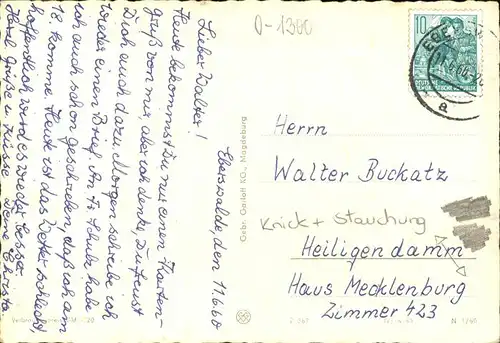 0-1300
Eberswalde, den 11.6.60
Lieber Walter!
Heute bekommst du nur einen Karten-
gruß von mir, aber ich denke, Du freust
Dich auch dazu. Morgen schreibe ich
wieder einen Brief. An Fr. Schulz habe
ich auch schon geschrieben, daß ich am
18. komme. Heute ist das Wetter schlecht
hoffentlich wird es wieder besser.
Herzl. Grüße u. Küsse Deine Christa
Gebr. Garloff KG., Magdeburg
10
DEUTSCHE
DEMOKRATISCHE REPUBLIK
a
Herrn
Walter Buckatz
Knick + Stauchung
Heiligendamm
Haus Mecklenburg
Zimmer 423